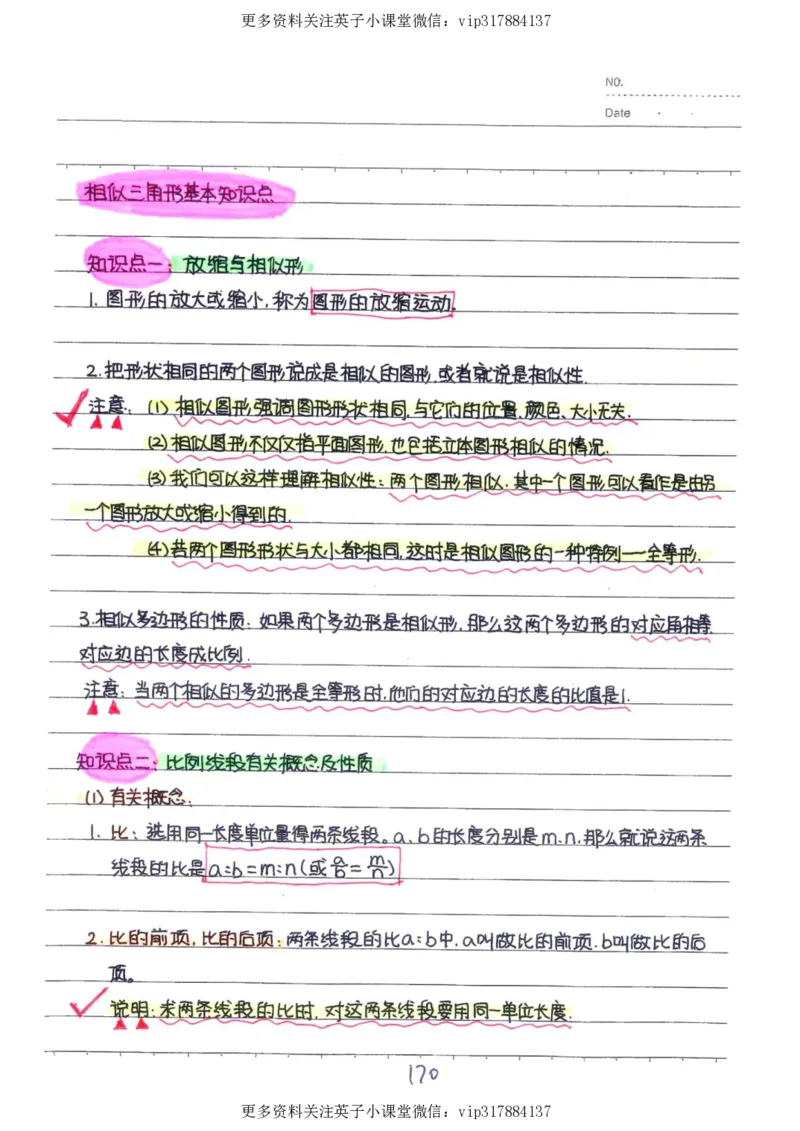 更多资料关注英子小课堂微信：vip317884137
NO.
Date
相似三角形基本知识点
知识点一：放缩与相似形
1. 图形的放大或缩小,称为图形的放缩运动.
2.把形状相同的两个图形说成是相似的图形,或者就说是相似性.
注意：(1) 相似图形强调图形形状相同,与它们的位置、颜色、大小无关.
(2)相似图形不仅仅指平面图形,也包括立体图形相似的情况.
(3)我们可以这样理解相似性：两个图形相似,其中一个图形可以看作是由另
一个图形放大或缩小得到的.
(4)若两个图形形状与大小都相同,这时是相似图形的一种特例——全等形.
3.相似多边形的性质：如果两个多边形是相似形,那么这两个多边形的对应角相等,
对应边的长度成比例.
注意：当两个相似的多边形是全等形时,他们的对应边的长度的比值是1.
知识点二：比例线段有关概念及性质
(1)有关概念：
1. 比：选用同一长度单位量得两条线段。a、b的长度分别是m、n,那么就说这两条
线段的比是a:b=m:n(或a/b=m/n)
2.比的前项,比的后项：两条线段的比a:b中,a叫做比的前项,b叫做比的后
项。
说明：求两条线段的比时,对这两条线段要用同一单位长度.
170
更多资料关注英子小课堂微信：vip317884137